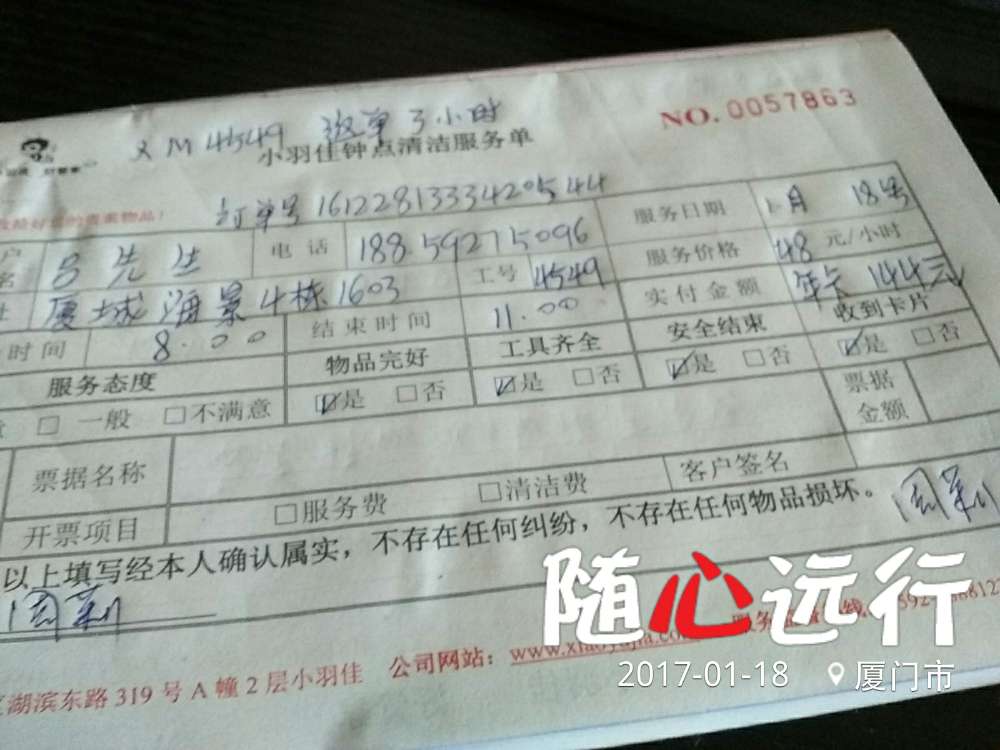 XM4549 派单3小时
NO.0057863
小羽佳钟点清洁服务单
订单号 1612281333420544
服务日期 1月 18号
吕先生 电话 18859275096 服务价格 48 元/小时
厦城海景4栋1603 工号 4549 实付金额 年卡 144元
时间 8:00 结束时间 11:00 安全结束 收到卡片
服务态度 物品完好 工具齐全 ☑是 □否 ☑是 □否
□ 一般 □不满意 ☑是 □否 ☑是 □否 票据金额
票据名称
开票项目 □服务费 □清洁费 客户签名
以上填写经本人确认属实，不存在任何纠纷，不存在任何物品损坏。
湖滨东路319号A幢2层小羽佳 公司网站：www.xiaoyujia.co
随心远行
2017-01-18 厦门市